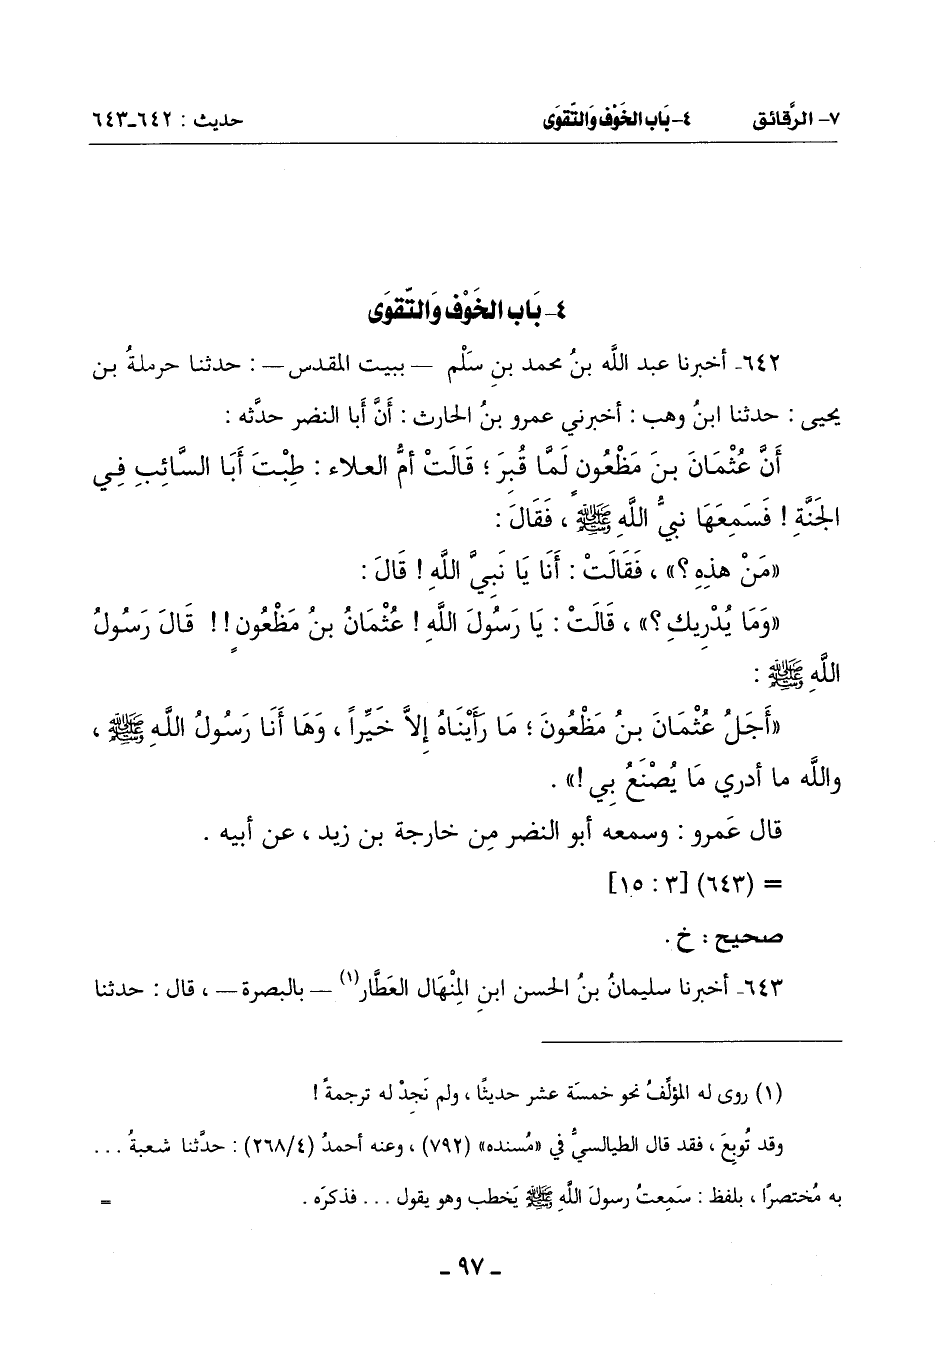 ٧- الرَّقائق ٤- بَاب الخَوْف وَالتَّقوَى حديث : ٦٤٢-٦٤٣
٤- بَاب الخَوْف وَالتَّقوَى
٦٤٢- أخبرنا عبد اللَّه بنُ محمد بنِ سَلْم — ببيت المقدس — : حدثنا حرملةُ بن
يحيى : حدثنا ابنُ وهب : أخبرني عمرو بنُ الحارث : أنَّ أبا النضر حدَّثه :
أَنَّ عُثْمَانَ بنَ مَظْعُونٍ لَمَّا قُبِرَ ؛ قَالَتْ أمُّ العلاء : طِبْتَ أَبَا السَّائِبِ فِي
الجَنَّةِ ! فَسَمِعَهَا نبيُّ اللَّهِ ﷺ ، فَقَالَ :
«مَنْ هذِهِ ؟» ، فَقَالَتْ : أَنَا يَا نَبِيَّ اللَّهِ ! قَالَ :
«وَمَا يُدْرِيكِ ؟» ، قَالَتْ : يَا رَسُولَ اللَّهِ ! عُثْمَانُ بنُ مَظْعُونٍ !! قَالَ رَسُولُ
اللَّهِ ﷺ :
«أَجَلُ عُثْمَانَ بنُ مَظْعُونَ ؛ مَا رَأَيْنَاهُ إِلاَّ خَيِّراً ، وَهَا أَنَا رَسُولُ اللَّهِ ﷺ ،
واللَّه ما أدري مَا يُصْنَعُ بِي !» .
قال عَمرو : وسمعه أبو النضر مِن خارجة بن زيد ، عن أبيه .
= (٦٤٣) [٣ : ١٥]
صحيح : خ .
٦٤٣- أخبرنا سليمانُ بنُ الحسن ابنِ المِنْهَال العَطَّار(١) — بالبصرة — ، قال : حدثنا
(١) روى له المؤلِّفُ نحو خمسَة عشر حديثًا ، ولم نَجِدْ له ترجمةً !
وقد تُوبِعَ ، فقد قال الطيالسيُّ في «مُسنده» (٧٩٢) ، وعنه أحمدُ (٢٦٨/٤) : حدَّثنا شعبةُ ...
به مُختصرًا ، بلفظ : سَمِعتُ رسولَ اللَّهِ ﷺ يَخطب وهو يقول ... فذكرَه . =
- ٩٧ -